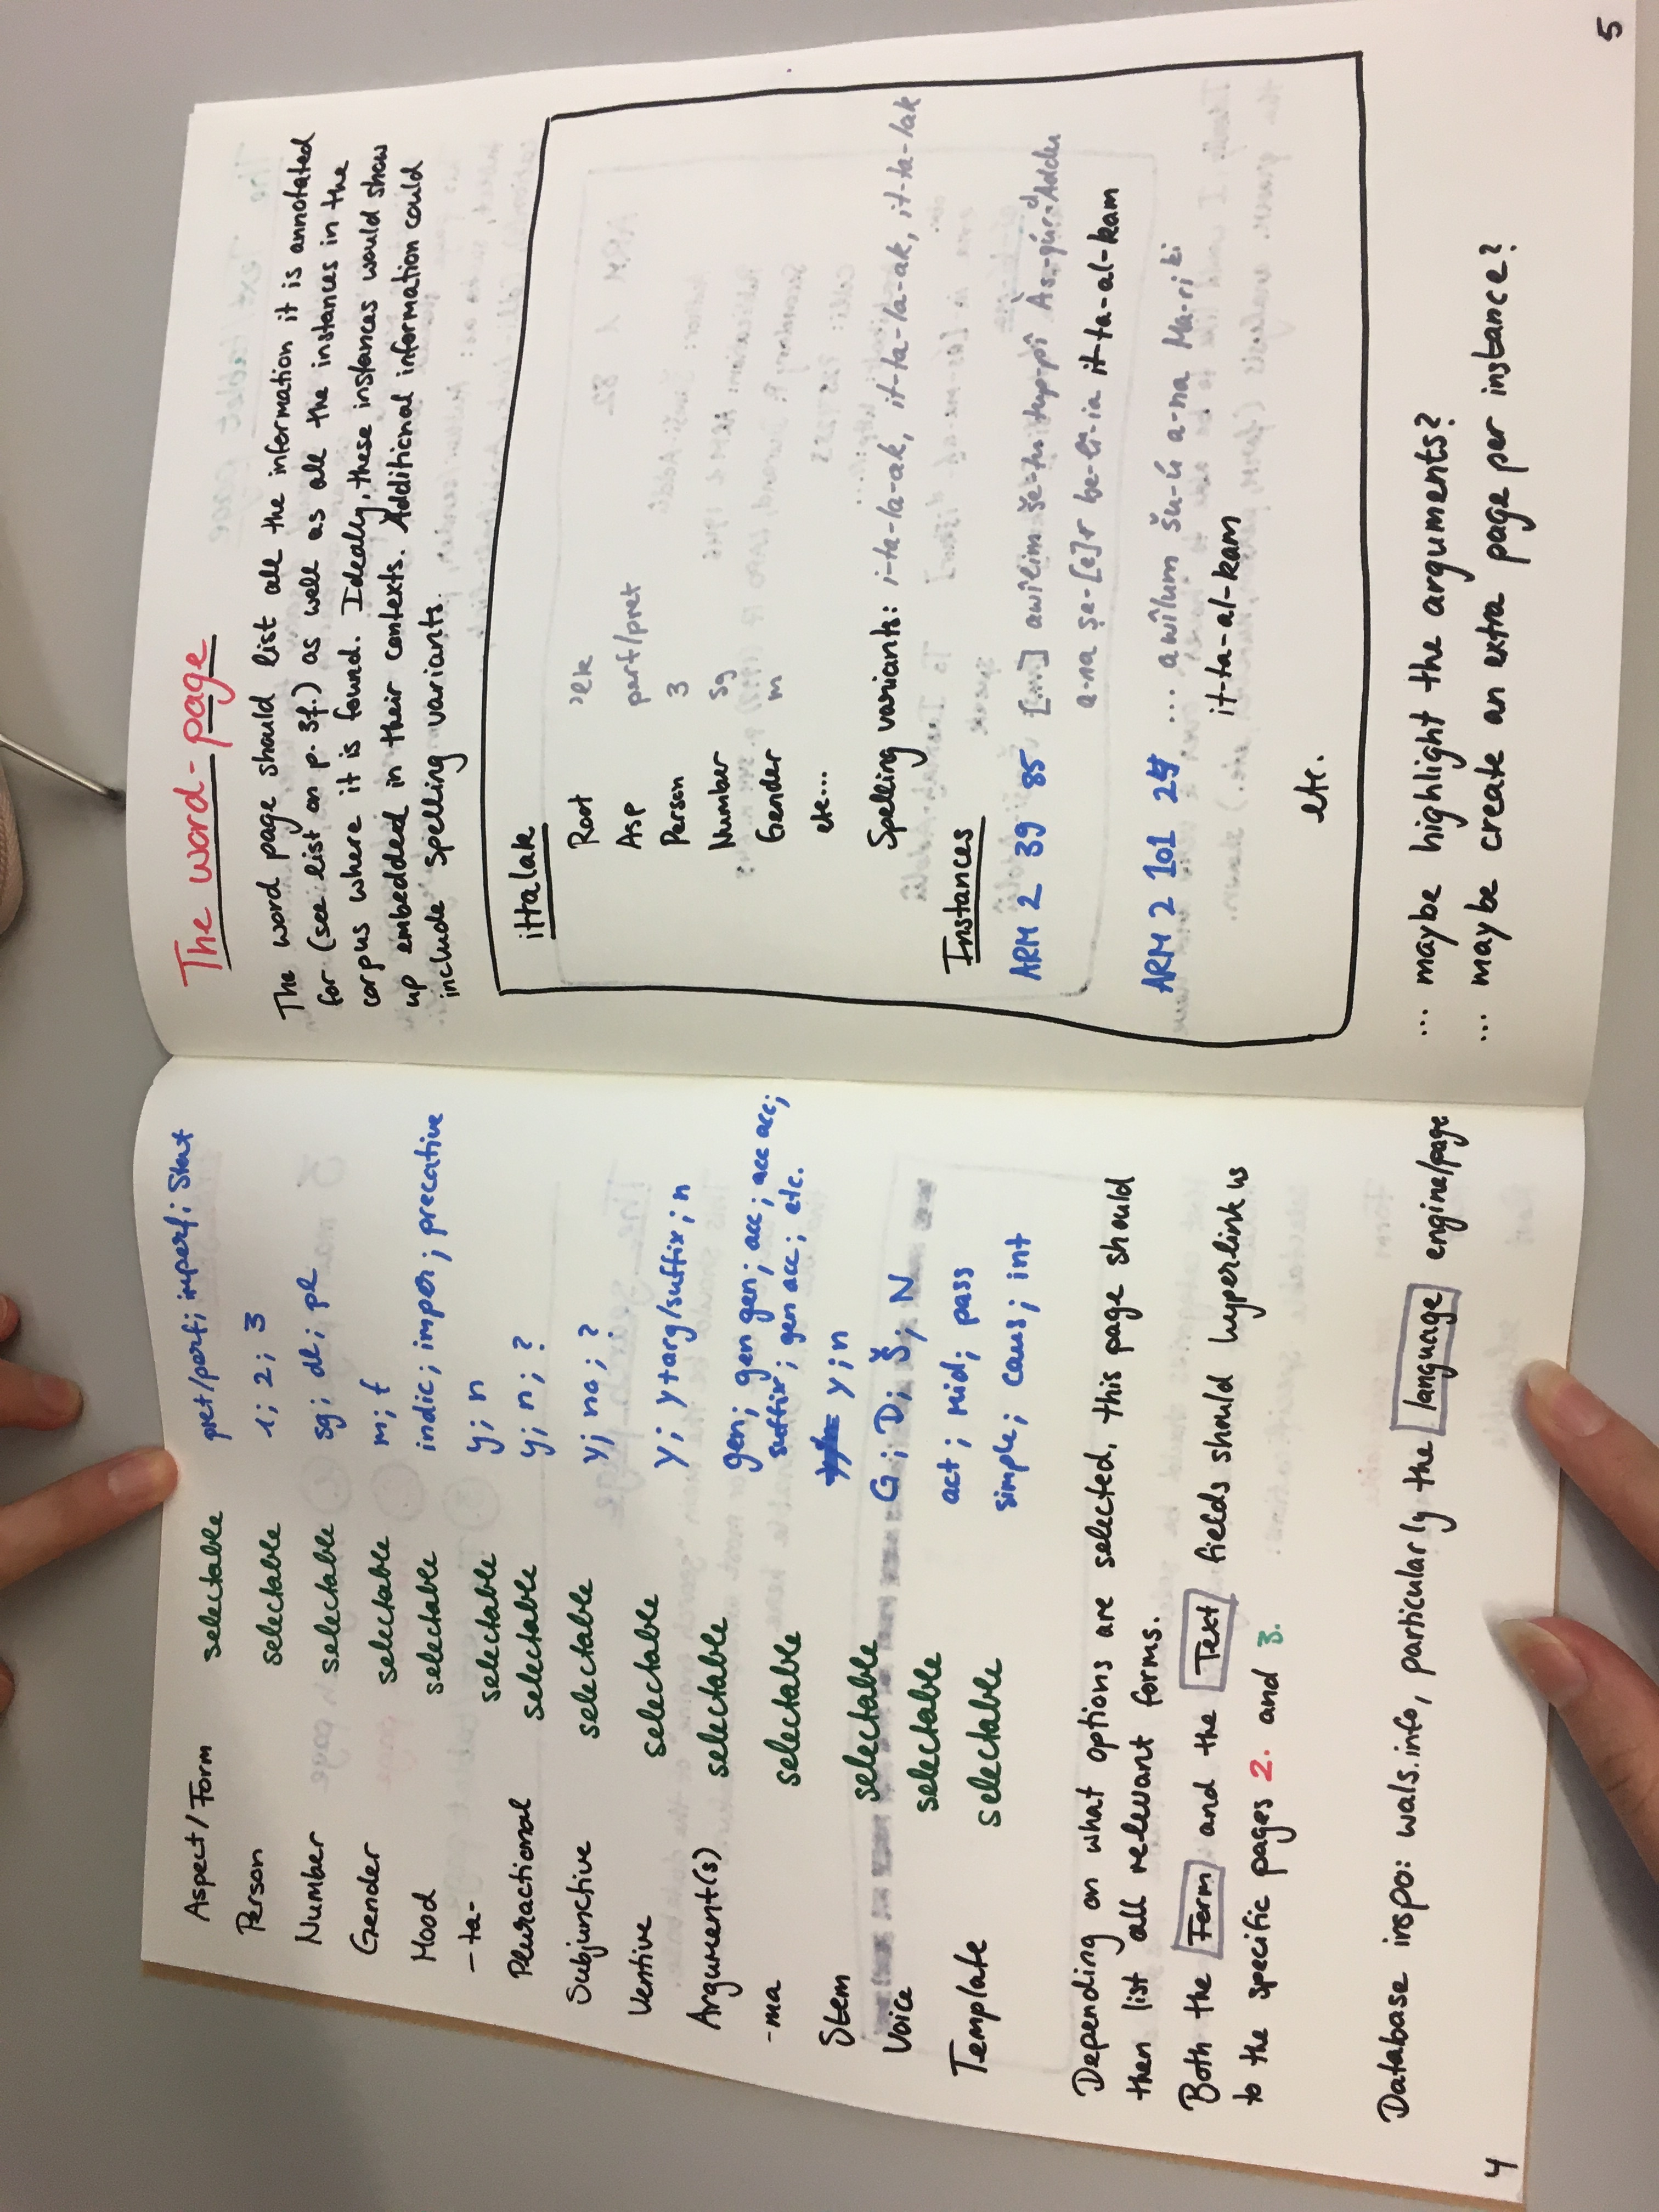 Aspect/Form selectable pret/perf; imperf; Stat
Person selectable 1; 2; 3
Number selectable sg; dl; pl
Gender selectable m; f
Mood selectable indic; imper; precative
-ta- selectable y; n
Pluractional selectable y; n; ?
Subjunctive selectable y; no; ?
Ventive selectable y; y+arg/suffix; n
Argument(s) selectable gen; gen gen; acc; acc acc;
suffix; gen acc; etc.
-ma selectable y; n
Stem selectable G; D; Š; N
Voice selectable act; mid; pass
Template selectable simple; caus; int
Depending on what options are selected, this page should
then list all relevant forms.
Both the Form and the Text fields should hyperlink us
to the specific pages 2. and 3.
Database inspo: wals.info, particularly the language engine/page
4
The word-page
The word page should list all the information it is annotated
for (see list on p. 3f.) as well as all the instances in the
corpus where it is found. Ideally, these instances would show
up embedded in their contexts. Additional information could
include spelling variants.
ittalak
Root ʾlk
Asp perf/pret
Person 3
Number sg
Gender m
etc...
Spelling variants: i-ta-la-ak, it-ta-la-ak, it-ta-lak
Instances
ARM 2 39 85 [...] awīlim še-tu ṭup-pí Às-qúr-ᵈAddu
a-na ṣe-[e]r be-lí-ia it-ta-al-kam
ARM 2 101 24 ... awīlum šu-ú a-na Ma-ri ᵏⁱ
it-ta-al-kam
etc.
... maybe highlight the arguments?
... maybe create an extra page per instance?
5